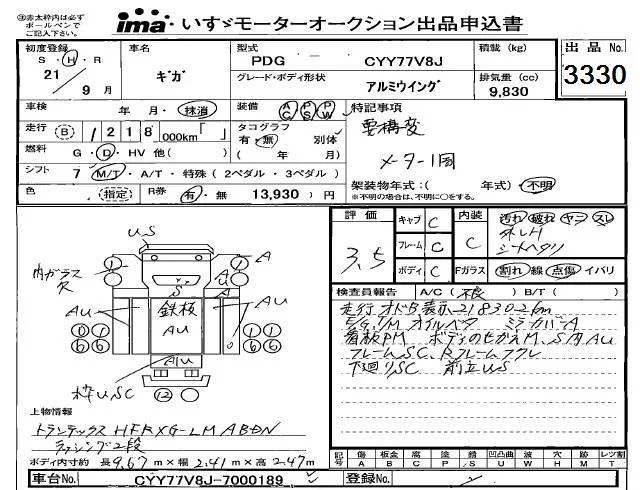 ③赤太枠内は必ず
ボールペンで
ご記入下さい。
ima いすゞモーターオークション出品申込書
初度登録 車名 型式 積載 (kg) 出品 No.
S・H・R ギガ PDG － CYY77V8J
21 9 月 グレード・ボディ形状 アルミウイング 排気量 (cc) 9,830 3330
車検 年・月・抹消 装備 A/C P/S P/W 特記事項
走行 (B) 1218 000km「 」 タコグラフ 有・無 別体 要構変
燃料 G・D・HV 他( ) ( 年 月) メーター1回
シフト 7 M/T・A/T・特殊 ( 2ペダル・3ペダル )
架装物年式:( 年式)・不明
色 (指定) R券 有・無 13,930 円 ※不明の場合は、不明に○をする。
評価 3.5
キャブ C 内装 C 汚れ 破れ ヤニ スレ
フレーム C シートヘタリ
ボディ C Fガラス 割れ 線 点傷 イバリ
検査員報告 A/C ( 不良 ) B/T ( )
走行 オドB表示218302km
E/G,T/M オイルベタ ミラーカバーA
看板PM
フレームSC、Rフレーム
下廻りSC 前立US
US A
内ガラス欠
S A U
鉄板
AU AU AU
AU
1 1
0 6 1 6
6 6 6 6
枠USC 12
上物情報
トランテックス HFRXG-LMABDN
ラッシング2段
ボディ内寸約 長 9.67 m × 幅 2.41 m × 高 2.47 m
記号 傷 板金 腐 塗 錆 凹凸曲 波 穴 跡 レツ割
A B C P S U W H M T
車台No. CYY77V8J-7000189 登録No.